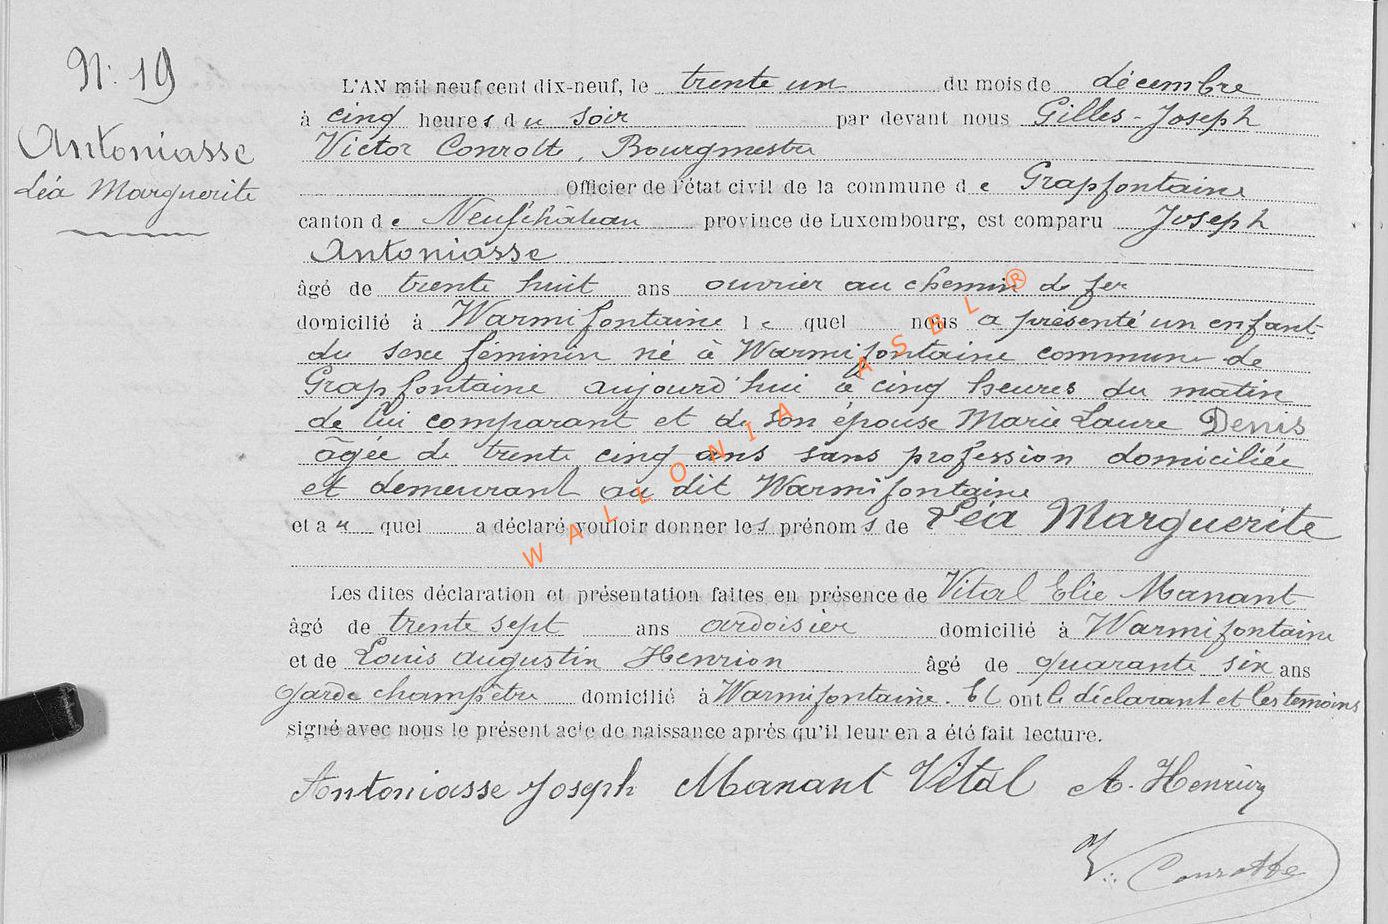 N: 19
Antoniasse
Léa Marguerite
L'AN mil neuf cent dix-neuf, le trente un du mois de décembre
à cinq heures du soir par devant nous Gilles-Joseph
Victor Conrotte, Bourgmestre
Officier de l'état civil de la commune de Grapfontaine
canton de Neufchâteau province de Luxembourg, est comparu Joseph
Antoniasse
âgé de trente huit ans ouvrier au chemin de fer
domicilié à Warmifontaine le quel nous a présenté un enfant
du sexe féminin né à Warmifontaine commune de
Grapfontaine aujourd'hui à cinq heures du matin
de lui comparant et de son épouse Marie Laure Denis
âgée de trente cinq ans sans profession domiciliée
et demeurant au dit Warmifontaine
et au quel a déclaré vouloir donner les prénoms de Léa Marguerite
Les dites déclaration et présentation faites en présence de Vital Elie Manant
âgé de trente sept ans ardoisier domicilié à Warmifontaine
et de Louis Augustin Henrion âgé de quarante six ans
garde champêtre domicilié à Warmifontaine. Et ont le déclarant et les temoins
signé avec nous le présent acte de naissance après qu'il leur en a été fait lecture.
Antoniasse Joseph Manant Vital A. Henrion
V. Conrotte
WALLONIA ASBL ®